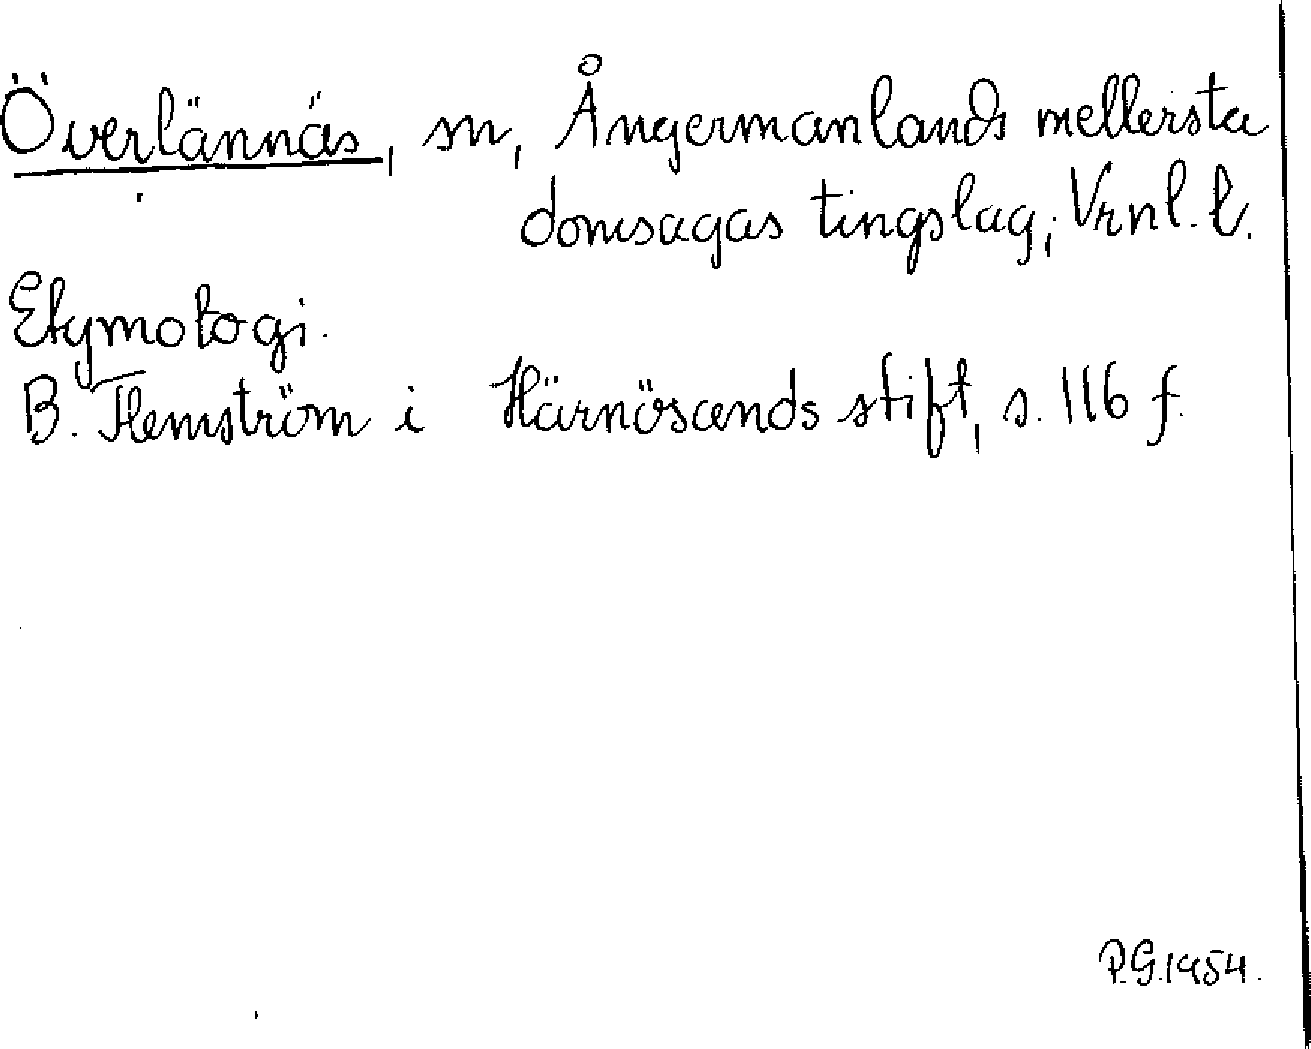 Överlännäs, sn, Ångermanlands mellersta
domsagas tingslag, Vrnl. l.
Etymologi.
B. Flemström i Härnösands stift, s. 116 f.
P.G. 1954.